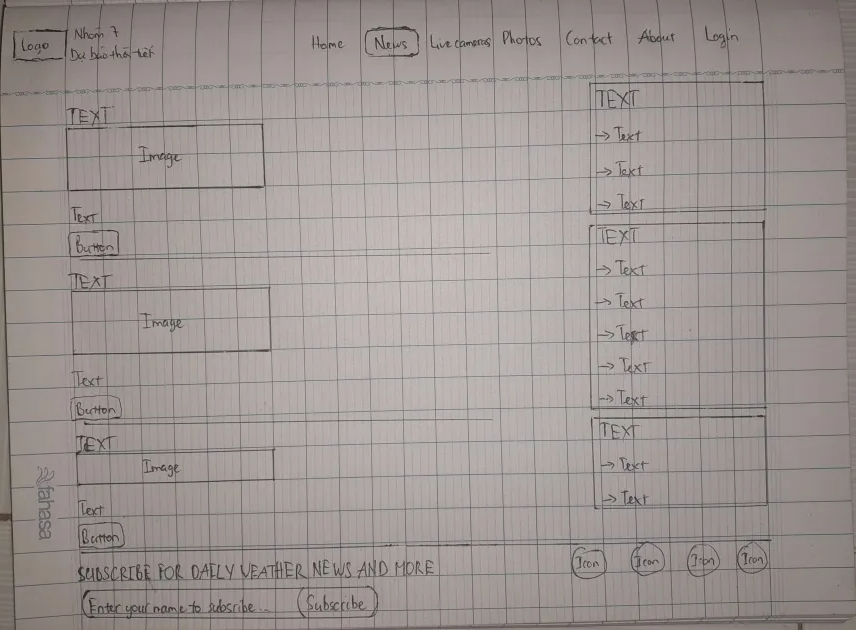 Logo
Nhóm 7
Dự báo thời tiết
Home News Live cameras Photos Contact About Login
TEXT
Image
Text
Button
TEXT
Image
Text
Button
TEXT
Image
Text
Button
TEXT
→ Text
→ Text
→ Text
TEXT
→ Text
→ Text
→ Text
→ Text
→ Text
TEXT
→ Text
→ Text
SUBSCRIBE FOR DAILY WEATHER NEWS AND MORE
Enter your name to subscribe... Subscribe
Icon Icon Icon Icon
fahasa